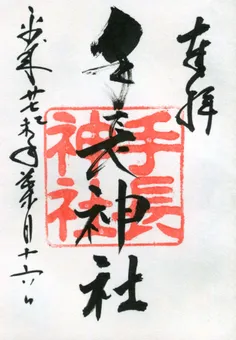 奉拝
手長神社
手長神社
平成廿七未年葉月十六日